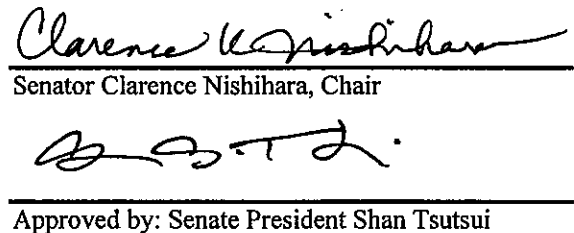 Clarence K. Nishihara
Senator Clarence Nishihara, Chair
Approved by: Senate President Shan Tsutsui